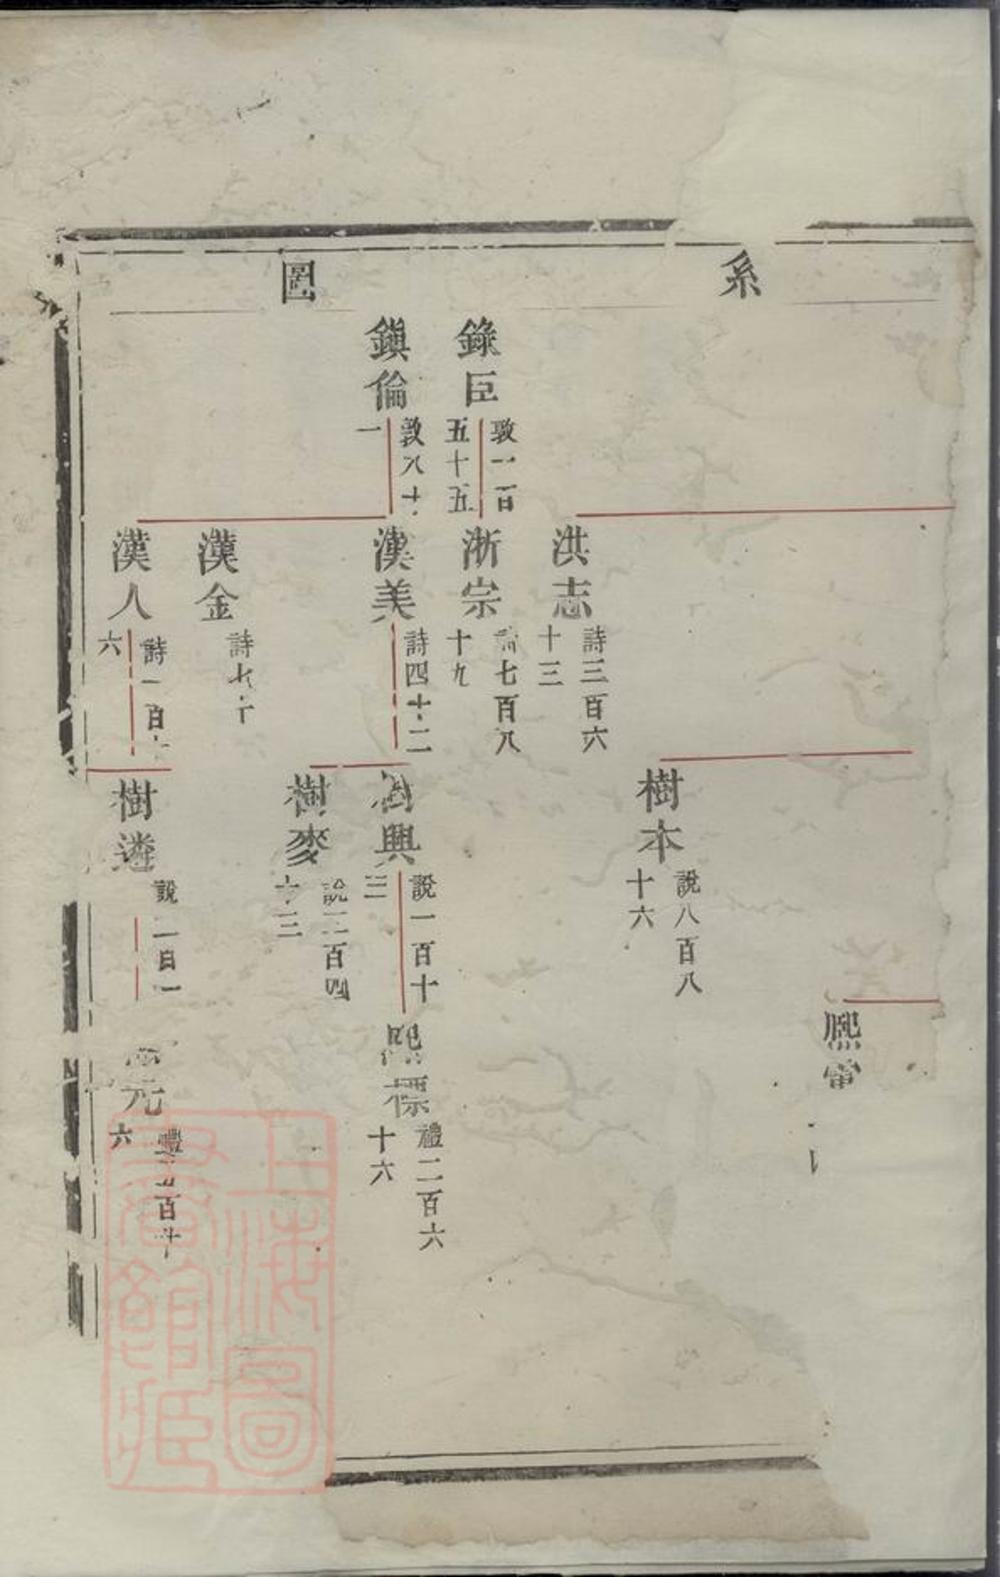 系圖
錄臣
敦一百五十五
鎮倫
敦八十一
洪志
詩三百六十三
淅宗
七百八十九
漢美
詩四十二
漢金
詩七十
漢人
詩一百十六
樹本
說八百八十六
樹興
說一百十三
樹麥
說三百四十三
樹遴
說二百一
熙電
熙標
禮二百六十六
元
禮五百廿六
上海圖書館藏